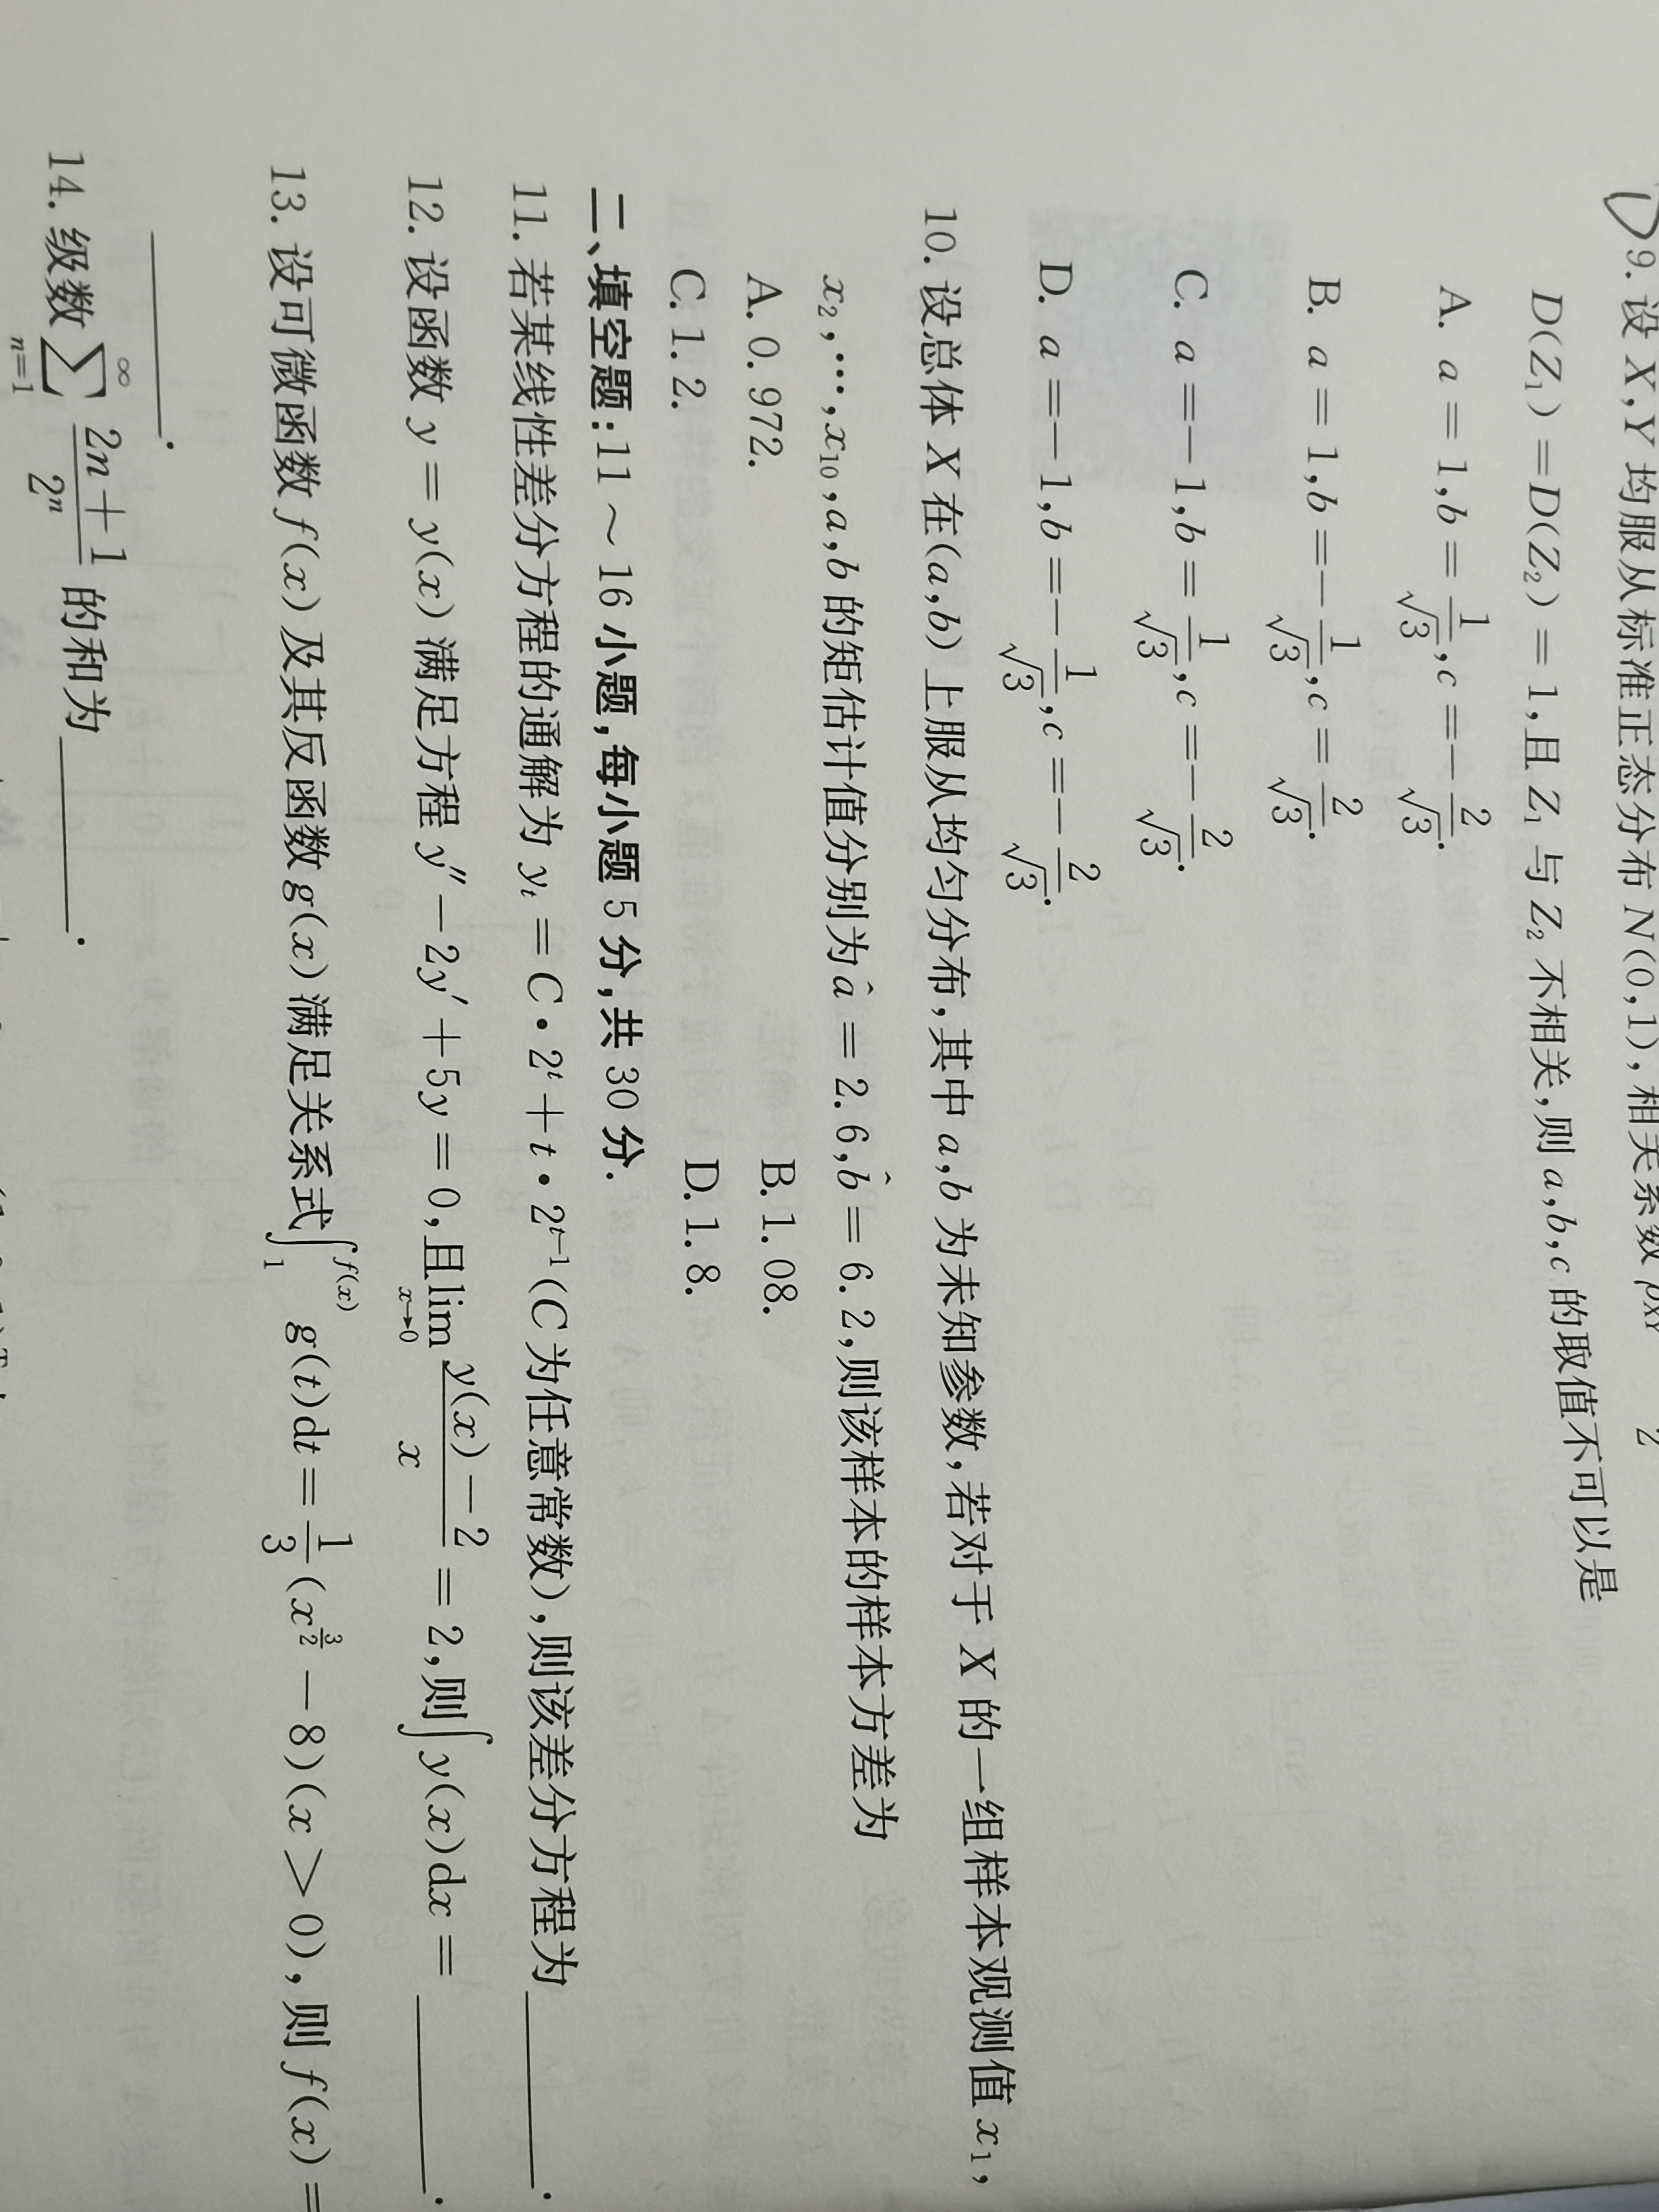 9. 设 X,Y 均服从标准正态分布 N(0,1),相关系数 ρ_{XY}
D(Z₁)=D(Z₂)=1,且 Z₁ 与 Z₂ 不相关,则 a,b,c 的取值不可以是
A. a=1,b=\frac{1}{\sqrt{3}},c=-\frac{2}{\sqrt{3}}.
B. a=1,b=-\frac{1}{\sqrt{3}},c=\frac{2}{\sqrt{3}}.
C. a=-1,b=\frac{1}{\sqrt{3}},c=-\frac{2}{\sqrt{3}}.
D. a=-1,b=-\frac{1}{\sqrt{3}},c=-\frac{2}{\sqrt{3}}.
10. 设总体 X 在(a,b)上服从均匀分布,其中 a,b 为未知参数,若对于 X 的一组样本观测值 x₁,
x₂,⋯,x₁₀,a,b 的矩估计值分别为 \hat{a}=2.6,\hat{b}=6.2,则该样本的样本方差为
A. 0.972. B. 1.08.
C. 1.2. D. 1.8.
二、填空题:11～16 小题,每小题 5 分,共 30 分.
11. 若某线性差分方程的通解为 y_t=C·2^t+t·2^{t-1}(C 为任意常数),则该差分方程为______.
12. 设函数 y=y(x)满足方程 y″-2y′+5y=0,且\lim_{x→0}\frac{y(x)-2}{x}=2,则∫y(x)dx=______.
13. 设可微函数 f(x)及其反函数 g(x)满足关系式∫_1^{f(x)} g(t)dt=\frac{1}{3}(x^{\frac{3}{2}}-8)(x>0),则 f(x)=
______.
14. 级数\sum_{n=1}^{∞}\frac{2n+1}{2^n}的和为______.